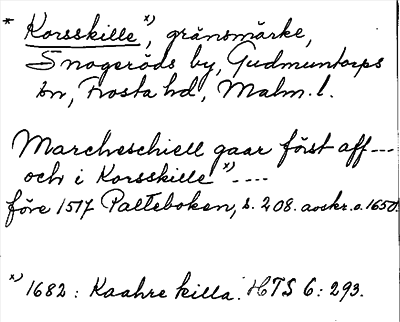 * Korsskille x), gränsmärke,
Snogeröds by, Gudmuntorps
sn, Frosta hd, Malm. l.
Marcheschiell gaar först aff ---
och i Korsskille x) ----
före 1517 Palteboken, s. 208. avskr. o. 1650.
x) 1682 : Kaahre killa. HTS 6: 293.